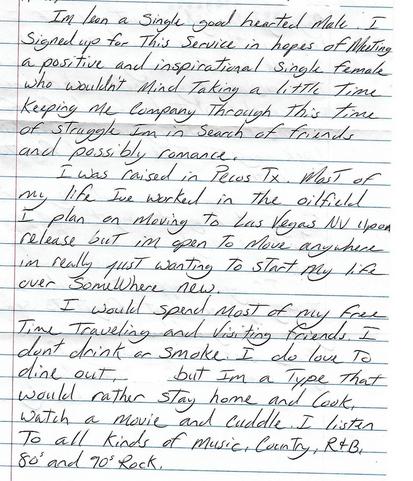 Im Leon a Single good hearted Male. I
Signed up for This Service in hopes of Meeting
a positive and inspirational single female
who wouldn't Mind Taking a little Time
Keeping Me Company Through This Time
of struggle Im in Search of friends
and possibly romance.
I was raised in Pecos Tx Most of
my life Ive worked in the oilfield
I plan on moving To Las Vegas NV Upon
release but im open To Move anywhere
im really just wanting To start My life
over SomeWhere new.
I would spend Most of my Free
Time Traveling and Visiting friends. I
dont drink or Smoke. I do love To
dine out, but Im a Type That
would rather stay home and Cook,
Watch a Movie and Cuddle. I listen
To all Kinds of Music, Country, R+B,
80's and 90's Rock.